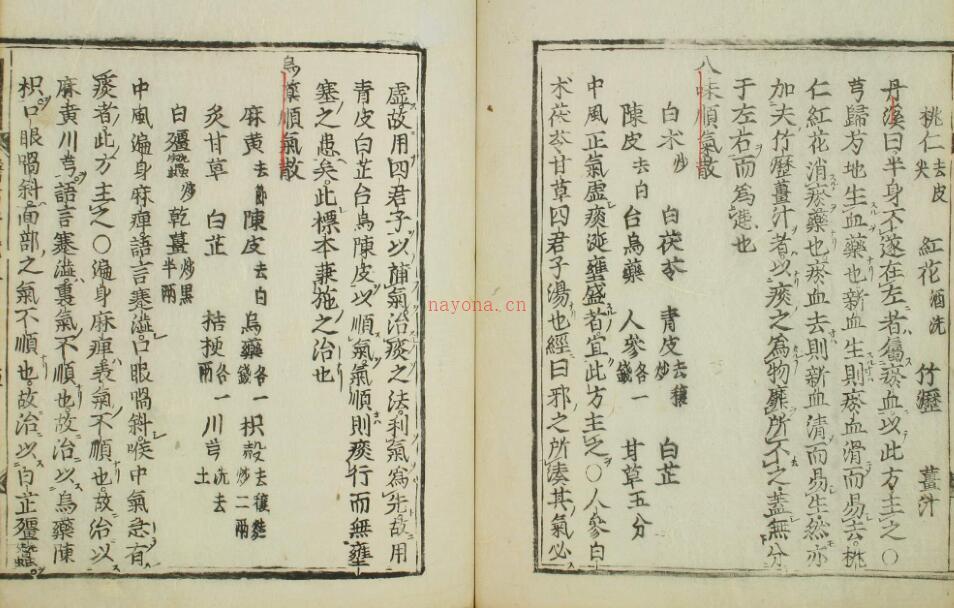 桃仁去皮尖 紅花酒洗 竹瀝 薑汁
丹溪曰半身不遂在左者屬瘀血以此方主之○
芎歸芍地生血藥也新血生則瘀血滑而易去桃
仁紅花消瘀藥也瘀血去則新血清而易生然亦
加夫竹瀝薑汁者以痰之為物靡所不之盖無分
于左右而為
也
八味順氣散
白朮炒 白茯苓 青皮去穰炒 白芷
陳皮去白 台烏藥 人參各一錢 甘草五分
中風正氣虛痰涎壅盛者宜此方主之○人參白
朮茯苓甘草四君子湯也經曰邪之所湊其氣必
虛故用四君子以補氣治痰之法利氣為先故用
青皮白芷台烏陳皮以順氣氣順則痰行而無壅
塞之患矣此標本兼施之治也
烏藥順氣散
麻黃去節 陳皮去白 烏藥各一 枳殼去穰麩炒二兩
炙甘草 白芷 桔梗各一兩 川芎洗去土
白殭蠶炒 乾薑炒黑半兩
中風遍身麻痺語言蹇澁口眼喎斜喉中氣急有
痰者此方主之○遍身麻痺表氣不順也故治以
麻黃川芎語言蹇澁裏氣不順也故治以烏藥陳
枳口眼喎斜面部之氣不順也故治以白芷殭蠶
nayona.cn